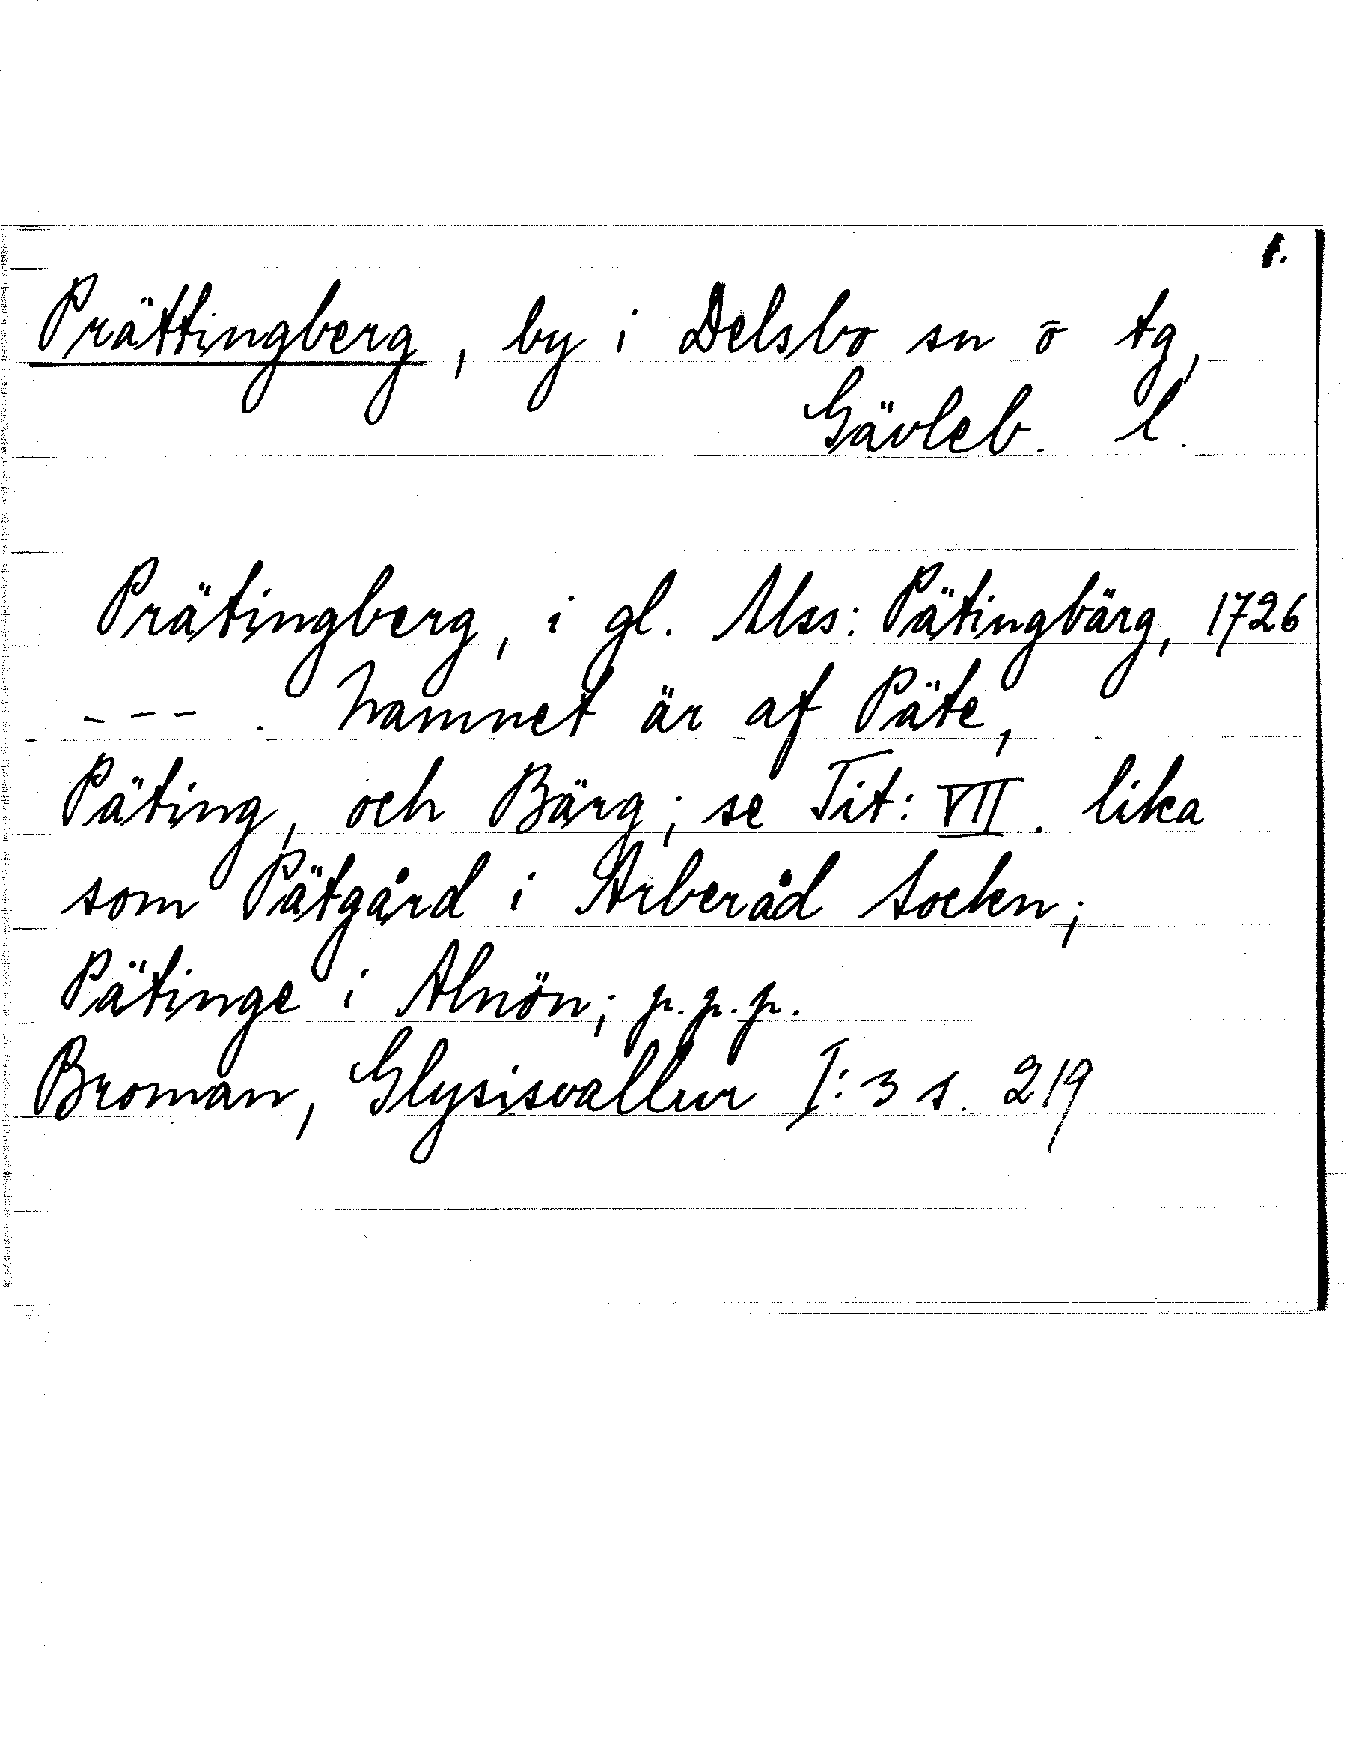 1.
Prättingberg, by i Delsbo sn o tg,
Gävleb. l.
Prätingberg, i gl. Mss: Pätingbärg, 1726
--- . Namnet är af Päte,
Päting, och Bärg; se Tit: VII. lika
som Pätgård i Arberåd Sockn;
Pätinge i Alnön; p.p.p.
Broman, Glysisvallur I:3 s. 219